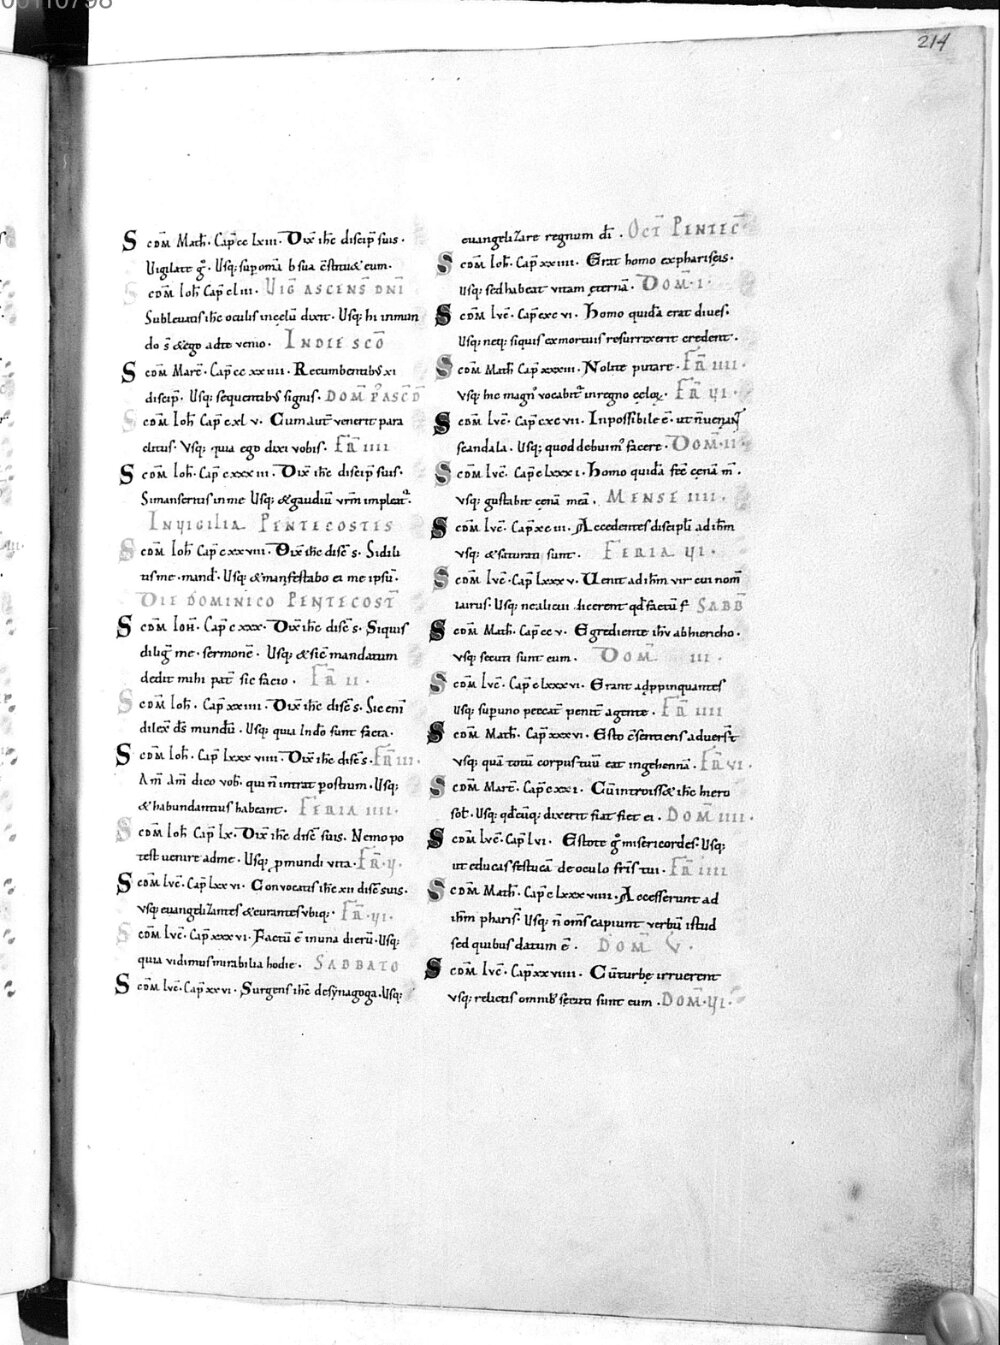 00110798
214
S cdm̄ Math̄. Cap̄ cc lxiii. Dix̄ ihc̄ discip̄ suis.
Vigilate g°. Usq; sup om̄a b sua c̄stitu& eum.
S cdm̄ Ioh̄ Cap̄ cliii. VIG̅ ASCENS̅ DN̅I
Subleuatis ihc̄ oculis in celū dixit. Usq; hi in mun
do s̄ & ego ad te venio. IN DIE SC̅O
S cdm̄ Marc̄. Cap̄ cc xx iiii. Recumbentib; xi
discip̄. Usq; sequentib; signis. DOM̅ P̊ ASC̅
S cdm̄ Ioh̄ Cap̄ c xl v. Cum aut̄ venerit para
clitus. Usq; quia ego dixi vobis. FR̅ IIII
S cdm̄ Ioh̄. Cap̄ c xxx iii. Dix̄ ihc̄ discip̄ suis.
Si manseritis in me Usq; & gaudiū vr̄m impleat̄.
IN VIGILIA PENTECOSTES
S cdm̄ Ioh̄ Cap̄ c xx viiii. Dix̄ ihc̄ disc̄ s. Si dili
tis me. mand̄. Usq; & manifestabo ei me ipsū.
DIE DOMINICO PENTECOST̅
S cdm̄ Ioh̄. Cap̄ c xxx. Dix̄ ihc̄ disc̄ s. Siquis
diliḡ me. sermonē. Usq; & sic̄ mandatum
dedit mihi pat̄ sic facio. FR̅ II.
S cdm̄ Ioh̄. Cap̄ xx iiii. Dix̄ ihc̄ disc̄ s. Sic eni̅
dilex̄ ds̄ mundū. Usq; quia In dō sunt facta.
S cdm̄ Ioh̄. Cap̄ lxxx viiii. Dix̄ ihc̄ disc̄ s. FR̅ III.
Am̄ Am̄ dico vob̄. qui n̄ intrat p ostium. Usq;
& habundantius habeant. FERIA IIII.
S cdm̄ Ioh̄ Cap̄ lx. Dix̄ ihc̄ disc̄ suis. Nemo po
test venire ad me. Usq; p mundi vita. FR̅ V.
S cdm̄ Lvc̄. Cap̄ lxx vi. Convocatis ihc̄ xii disc̄ suis.
vsq; euangelizantes & curantes vbiq;. FR̅ VI.
S cdm̄ Lvc̄. Cap̄ xxx vi. Factū ē in una dierū. Usq;
quia vidimus mirabilia hodie. SABBATO
S cdm̄ Lvc̄. Cap̄ xx vi. Surgens ihc̄ de synagoga. Usq;
euangelizare regnum dī. OCT̅ PENTEC̅
S cdm̄ Ioh̄. Cap̄ xx iiii. Erat homo ex phariseis.
Usq; sed habeat vitam ęternā. DOM̅. I.
S cdm̄ Lvc̄. Cap̄ cxc vi. Homo quidā erat diues.
Usq; neq; siquis ex mortuis resurrexerit credent.
S cdm̄ Math̄ Cap̄ xxxiii. Nolite putare. FR̅ IIII.
Vsq; hic magn; vocabit̄ in regno cęlor. FR̅ VI.
S cdm̄ Lvc̄. Cap̄ cxc vii. Inpossibile ē. ut n̄ ueniant
scandala. Usq; quod debuim; facere. DOM̅. II.
S cdm̄ Lvc̄. Cap̄ c lxxx i. Homo quidā fec̄ cęnā m̄.
vsq; gustabit cęnā meā. MENSE IIII.
S cdm̄ Lvc̄. Cap̄ xc iii. Accedentes discipli ad ih̄m
vsq; & saturati sunt. FERIA VI.
S cdm̄ Lvc̄. Cap̄ lxxx v. Uenit ad ih̄m vir cui nom̄
iairus. Usq; ne alicui dicerent qd̄ factū f̄. SABB̅
S cdm̄ Math̄. Cap̄ cc v. Egrediente ihv̄ ab hiericho.
vsq; secuti sunt eum. DOM̅ III.
S cdm̄ Lvc̄. Cap̄ c lxxx vi. Erant adppinquantes
Usq; sup uno peccat̄ penit̄ agente. FR̅ IIII
S cdm̄ Math̄. Cap̄ xxx vi. Esto c̄sentiens aduers̄
vsq; quā totū corpus tuū eat in gehennā. FR̅ VI.
S cdm̄ Marc̄. Cap̄ c xx i. Cū introiss& ihc̄ hiero
sol̄. Usq; qd̄cūq; dixerit fiat fiet ei. DOM̅ IIII.
S cdm̄ Lvc̄. Cap̄ lvi. Estote g° misericordes. Usq;
ut educas festucā de oculo fr̄is tui. FR̅ IIII
S cdm̄ Math̄. Cap̄ c lxxx viiii. Accesserunt ad
ih̄m pharis̄. Usq; n̄ oms̄ capiunt verbū istud
sed quibus datum ē. DOM̅ V.
S cdm̄ Lvc̄. Cap̄ xx viiii. Cū turbę irruerent
vsq; relictis omnib; secuti sunt eum. DOM̅. VI.